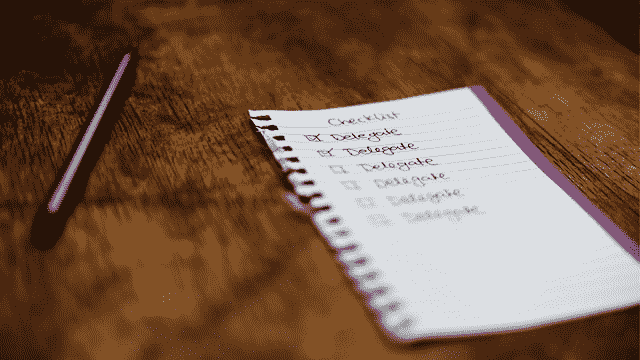 Checklist
☑ Delegate
☑ Delegate
☐ Delegate
☐ Delegate
☐ Delegate
☐ Delegate